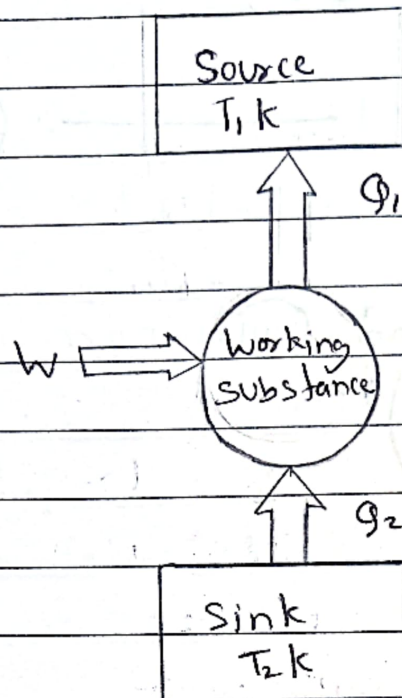 Source
T₁ K
Q₁
W
Working
substance
Q₂
Sink
T₂ K